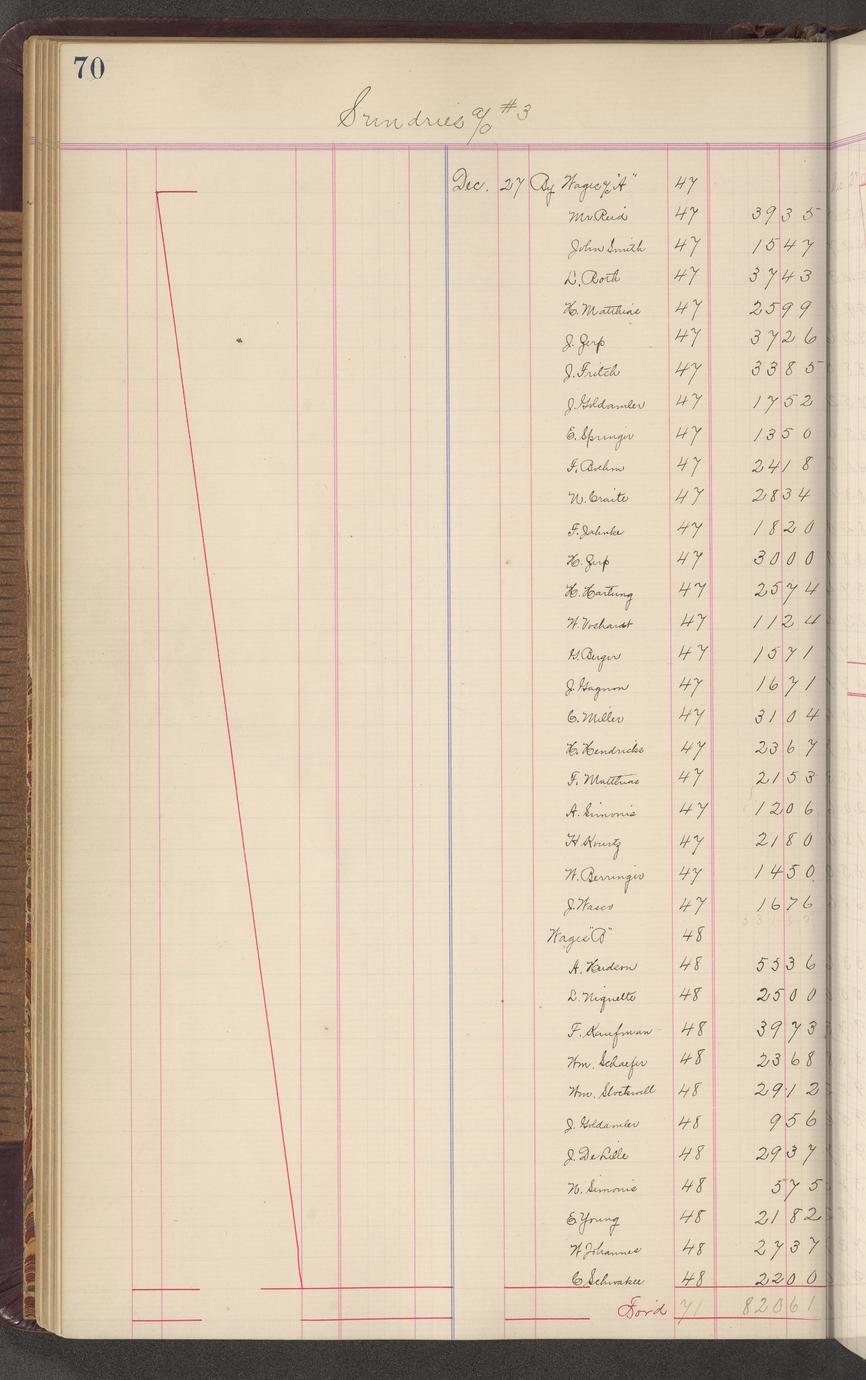 70
Sundries a/c #3
Dec. 27 By Wages "A" 47
Mr. Reid 47 39 35
John Smith 47 15 47
L. Roth 47 37 43
H. Matthias 47 25 99
J. Zerp 47 37 26
J. Fritch 47 33 85
J. Goldamler 47 17 52
E. Springer 47 13 50
F. Boehm 47 24 18
N. Craite 47 28 34
F. Jahnke 47 18 20
H. Zerp 47 30 00
H. Hartung 47 25 74
W. 47 11 24
G. Berger 47 15 71
J. Gagnon 47 16 71
C. Miller 47 31 04
H. Hendricks 47 23 67
F. Matthias 47 21 53
A. Simonis 47 12 06
H. Kountz 47 21 80
W. Berringer 47 14 50
J. Wasco 47 16 76
Wages "B" 48
A. 48 55 36
L. Niquette 48 25 00
F. Kaufman 48 39 73
Wm. Schaefer 48 23 68
Wm. Stockwell 48 29 12
J. Goldamler 48 9 56
J. DeLille 48 29 37
N. Simonis 48 5 75
E. Young 48 21 82
W. Johannes 48 27 37
C. Schwakee 48 22 00
For'd 71 820 61